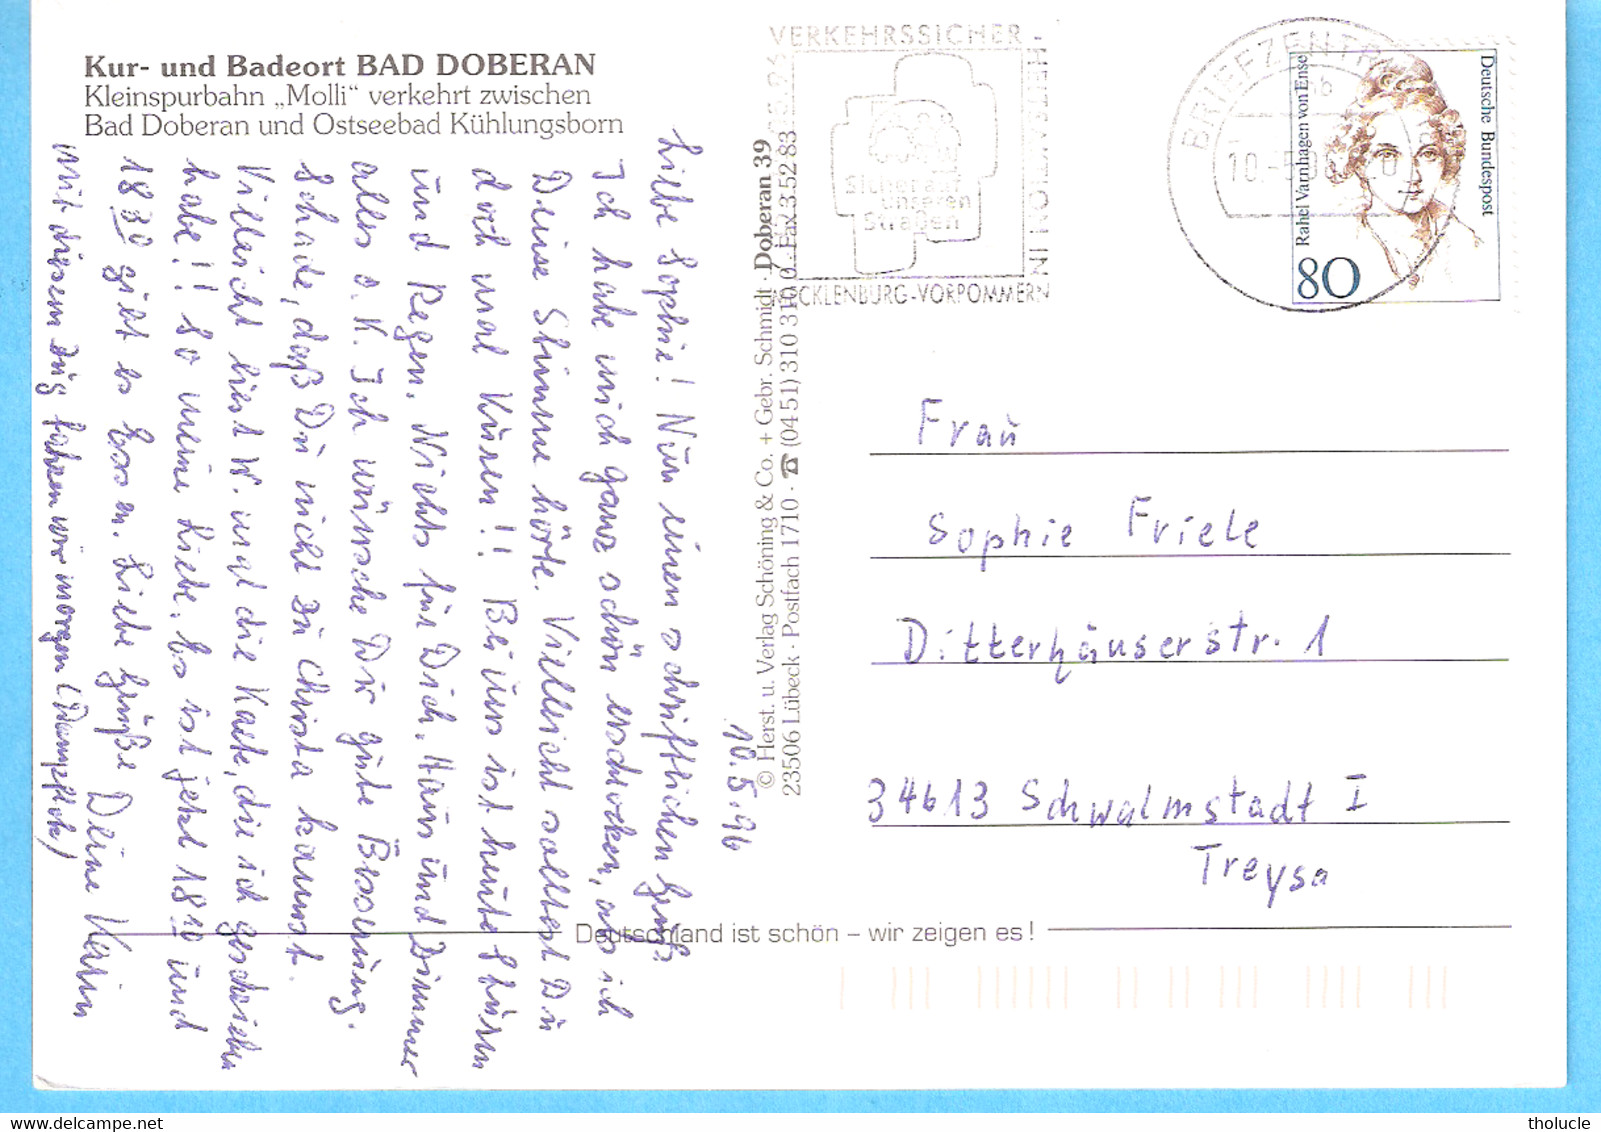 Kur- und Badeort BAD DOBERAN
Kleinspurbahn „Molli“ verkehrt zwischen
Bad Doberan und Ostseebad Kühlungsborn
10.5.96
Liebe Sophie! Nun einen schriftlichen Gruß.
Ich habe mich ganz schön erschrocken, als ich
Deine Stimme hörte. Vielleicht solltest Du
doch mal Kuren!! Bei uns ist heute Sturm
und Regen. Nichts für Dich. Haus und Dinner
alles o.K. Ich wünsche Dir gute Besserung.
Schade, daß Du nicht zu Christa kannst.
Vielleicht liest W. mal die Karte, die ich geschrieben
habe!! So meine Liebe. Es ist jetzt 18 10 und
18 30 gibt es Essen. Liebe Grüße Deine Karin
Mit diesem Zug fahren wir morgen (Dampflok)
© Herst. u. Verlag Schöning & Co. + Gebr. Schmidt · Doberan 39
23506 Lübeck · Postfach 1710 · ☎ (0451) 310 310 0 · Fax 3 52 83
VERKEHRSSICHER -
HEITSWOCHE IN
MECKLENBURG-VORPOMMERN
Sicher auf
unseren
Straßen
BRIEFZENTRUM
10.-5.96
Deutsche Bundespost
Rahel Varnhagen von Ense
80
Frau
Sophie Friele
Ditterhäuserstr. 1
34613 Schwalmstadt I
Treysa
Deutschland ist schön – wir zeigen es!
delcampe.net
tholucle